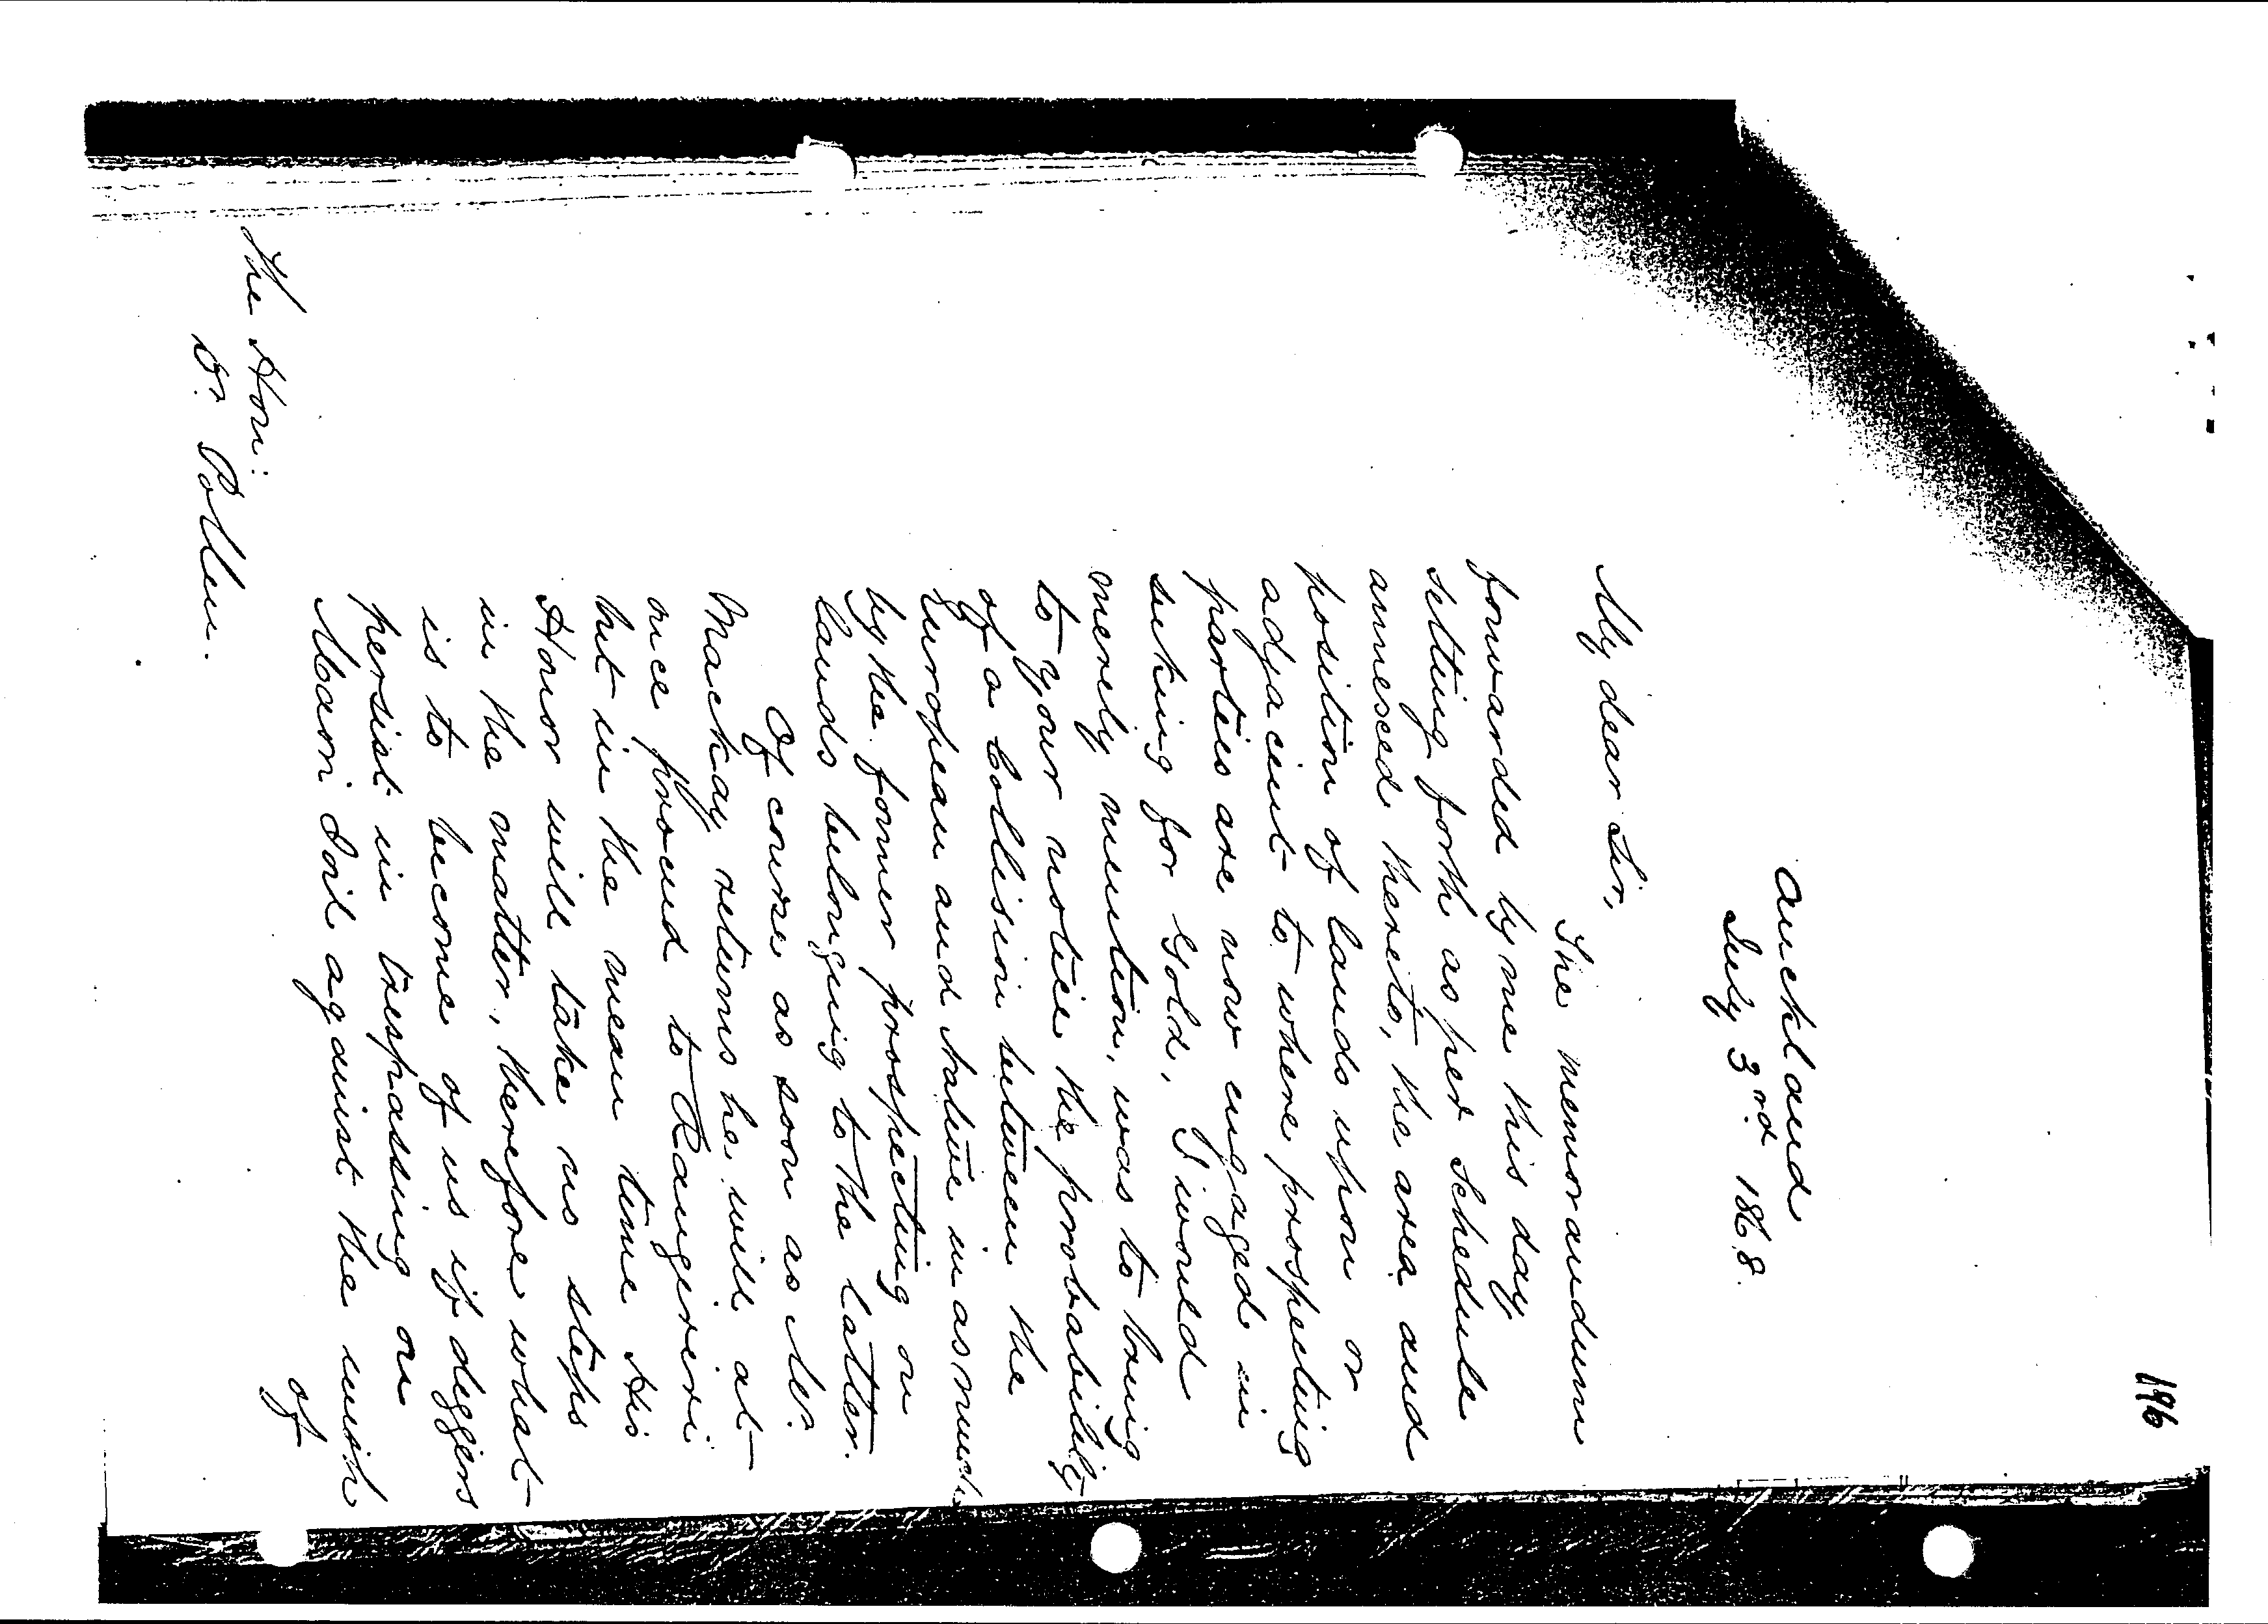 196
Auckland
July 3rd 1868.
My dear Sir,
The memorandum
forwarded by me this day
setting forth as per Schedule
annexed thereto, the area and
position of lands upon or
adjacent to where prospecting
parties are now engaged in
seeking for Gold, I would
merely mention, was to bring
to your notice the probability
of a Collision between the
European and Native in as much
by the former prospecting on
lands belonging to the latter.
Of course as soon as Mr.
Mackay returns he will at
once proceed to Rangiriri
but in the mean time His
Honor will take no steps
in the matter, therefore what
is to become of us if diggers
persist in trespassing on
Maori Soil against the wish
of
The Hon:
Dr. Pollen.